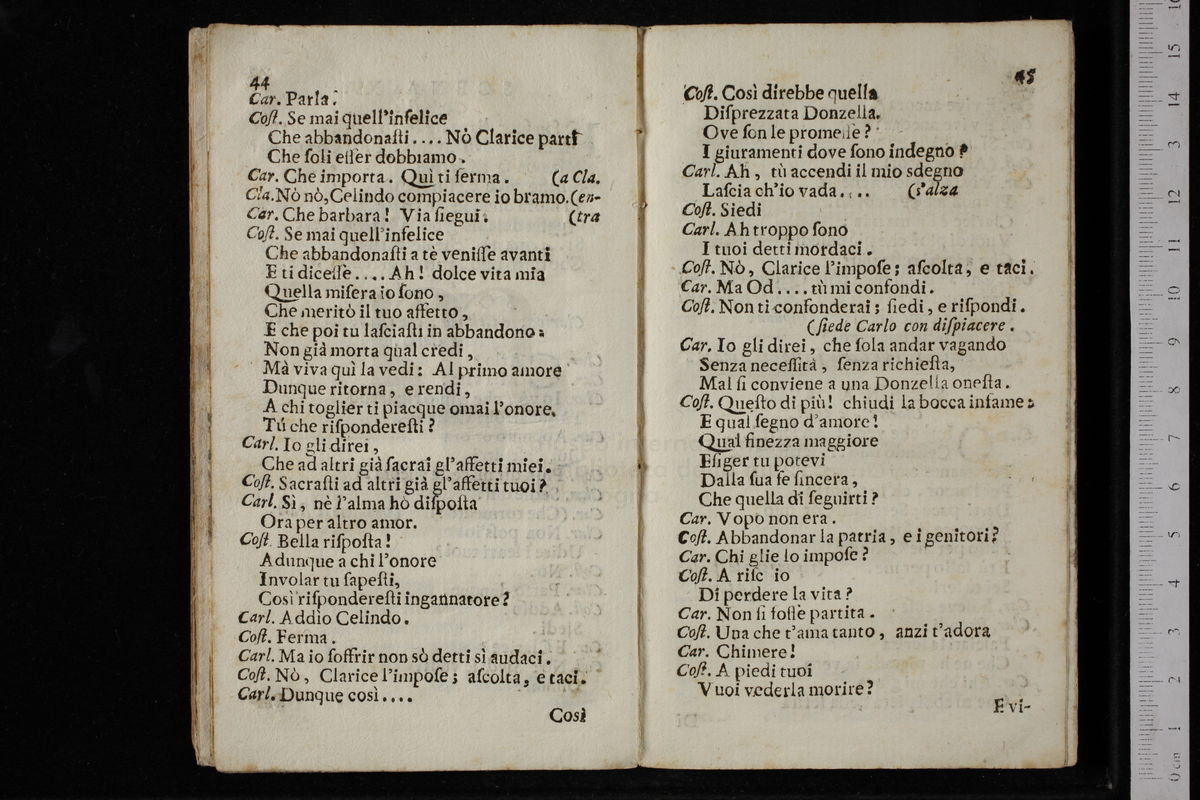 44
Car. Parla.
Coſt. Se mai quell'infelice
Che abbandonaſti.... Nò Clarice parti
Che ſoli eſſer dobbiamo.
Car. Che importa. Quì ti ferma. (a Cla.
Cla. Nò nò, Celindo compiacere io bramo. (en-
Car. Che barbara! Via ſiegui. (tra
Coſt. Se mai quell'infelice
Che abbandonaſti a tè veniſſe avanti
E ti diceſſe.... Ah! dolce vita mia
Quella miſera io ſono,
Che meritò il tuo affetto,
E che poi tu laſciaſti in abbandono:
Non già morta qual credi,
Mà viva quì la vedi: Al primo amore
Dunque ritorna, e rendi,
A chi toglier ti piacque omai l'onore.
Tú che riſpondereſti?
Carl. Io gli direi,
Che ad altri già ſacrai gl'affetti miei.
Coſt. Sacraſti ad altri già gl'affetti tuoi?
Carl. Sì, nè l'alma hò diſpoſta
Ora per altro amor.
Coſt. Bella riſpoſta!
Adunque a chi l'onore
Involar tu ſapeſti,
Così riſpondereſti ingannatore?
Carl. Addio Celindo.
Coſt. Ferma.
Carl. Ma io ſoffrir non sò detti sì audaci.
Coſt. Nò, Clarice l'impoſe; aſcolta, e taci.
Carl. Dunque così....
Così
45
Coſt. Così direbbe quella
Diſprezzata Donzella.
Ove ſon le promeſſe?
I giuramenti dove ſono indegno?
Carl. Ah, tù accendi il mio sdegno
Laſcia ch'io vada.... (s'alza
Coſt. Siedi
Carl. Ah troppo ſono
I tuoi detti mordaci.
Coſt. Nò, Clarice l'impoſe; aſcolta, e taci.
Car. Ma Od.... tù mi confondi.
Coſt. Non ti confonderai; ſiedi, e riſpondi.
(ſiede Carlo con diſpiacere.
Car. Io gli direi, che ſola andar vagando
Senza neceſſità, ſenza richieſta,
Mal ſi conviene a una Donzella oneſta.
Coſt. Queſto di più! chiudi la bocca infame:
E qual ſegno d'amore!
Qual finezza maggiore
Eſiger tu potevi
Dalla ſua fe ſincera,
Che quella di ſeguirti?
Car. Vopo non era.
Coſt. Abbandonar la patria, e i genitori?
Car. Chi glie lo impoſe?
Coſt. A riſc io
Di perdere la vita?
Car. Non ſi foſſe partita.
Coſt. Una che t'ama tanto, anzi t'adora
Car. Chimere!
Coſt. A piedi tuoi
Vuoi vederla morire?
E vi-